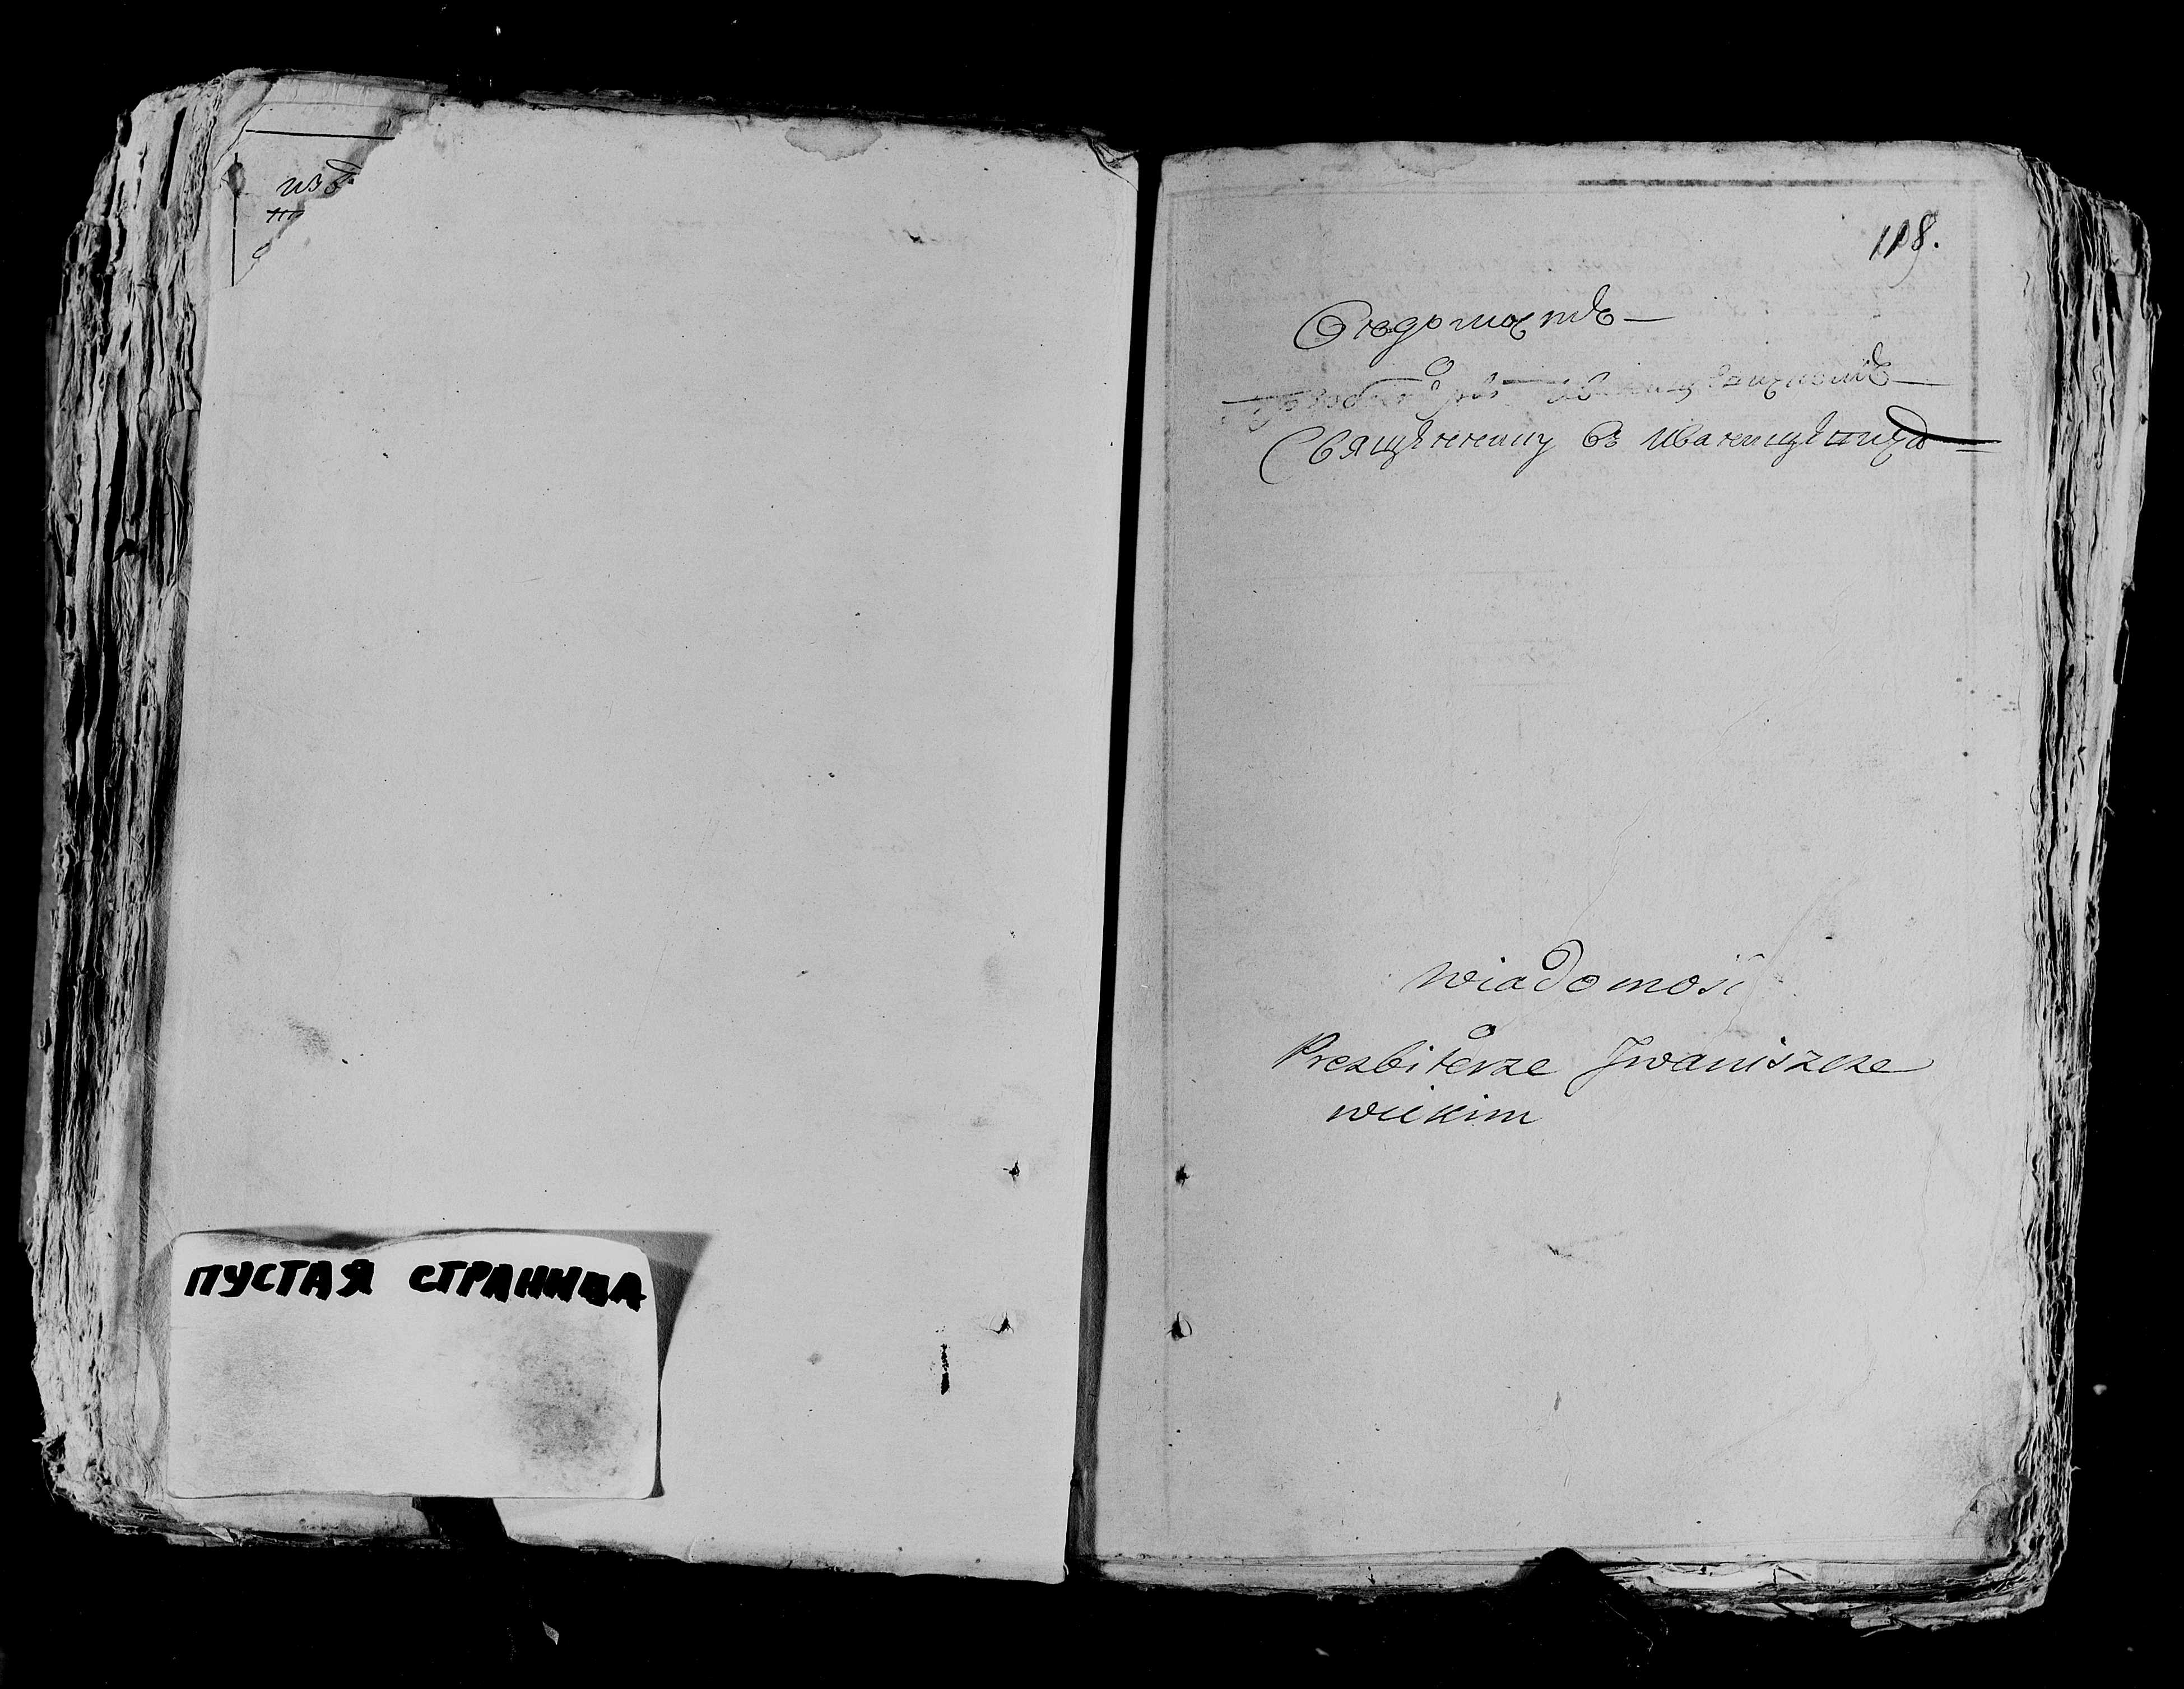 изъ
ПУСТАЯ СТРАНИЦА
118.
Вѣдомость
о
Священнику въ Иванищевичахъ
Wiadomość
o
Prezbiterze Iwaniszcze
wickim